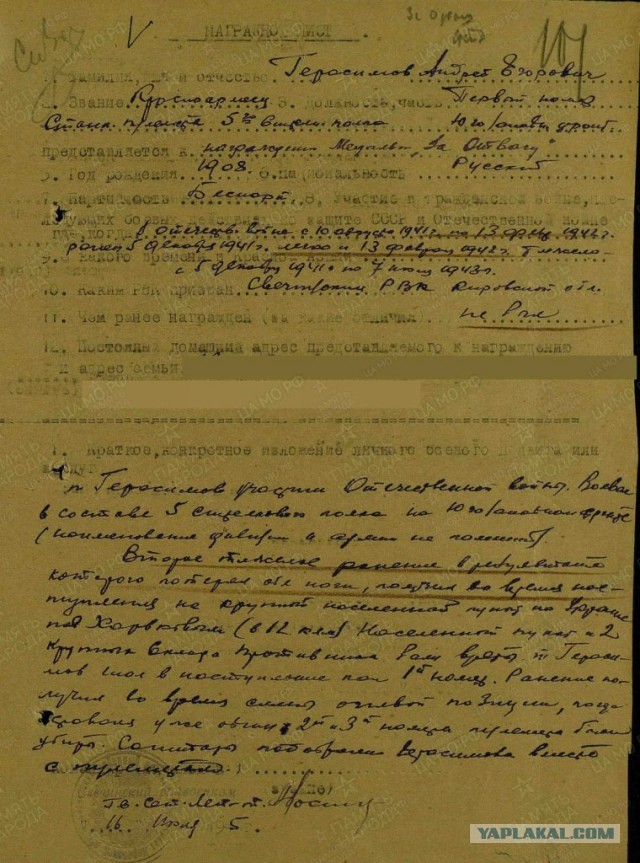 НАГРАДНОЙ ЛИСТ
107
1. Фамилия, имя и отчество Герасимов Андрей Егорович
2. Звание Красноармеец 3. должность, часть Первый номер
Станк. пулемёта 5го полка Юго/западн фронт.
представляется к награждению Медалью "За Отвагу"
5. Год рождения 1908 6. национальность Русский
7. партийность Беспарт. 8. Участие в гражданской войне,
действиях по защите СССР и Отечественной войне
где, когда в отечеств войне с 10 августа 1941г. по 13 февр 1942г.
ранен 5 декабря 1941г. легко и 13 февраля 1942г. Тяжело
9. С какого времени в Красной Армии
с 5 декабря 1941г по 7 июня 1943г.
10. Каким РВК призван Свечинским РВК Кировской обл.
11. Чем ранее награжден (за какие отличия) не был
12. Постоянный домашний адрес представляемого к награждению
и адрес семьи
1. Краткое, конкретное изложение личного боевого подвига или
т. Герасимов участник Отечественной войны. Воевал
в составе 5 стрелкового полка на Юго/западном фронте
(наименование дивизии и армии не помнит).
Второе тяжелое ранение в результате
которого потерял обе ноги, получил во время нас-
тупления на крупный населенный пункт на Украине
под Харьковым (в 12 клм) Населенный пункт и 2
крупных склада противника были взяты. т. Гераси-
мов шел в наступление как 1й номер. Ранение по-
лучил во время смены огневой позиции, когда
2й и 3й номера пулемета были
убиты. Санитары подобрали Герасимова вместе
с пулеметом.
Гв. Лейт.
16 Июня 5.
YAPLAKAL.COM